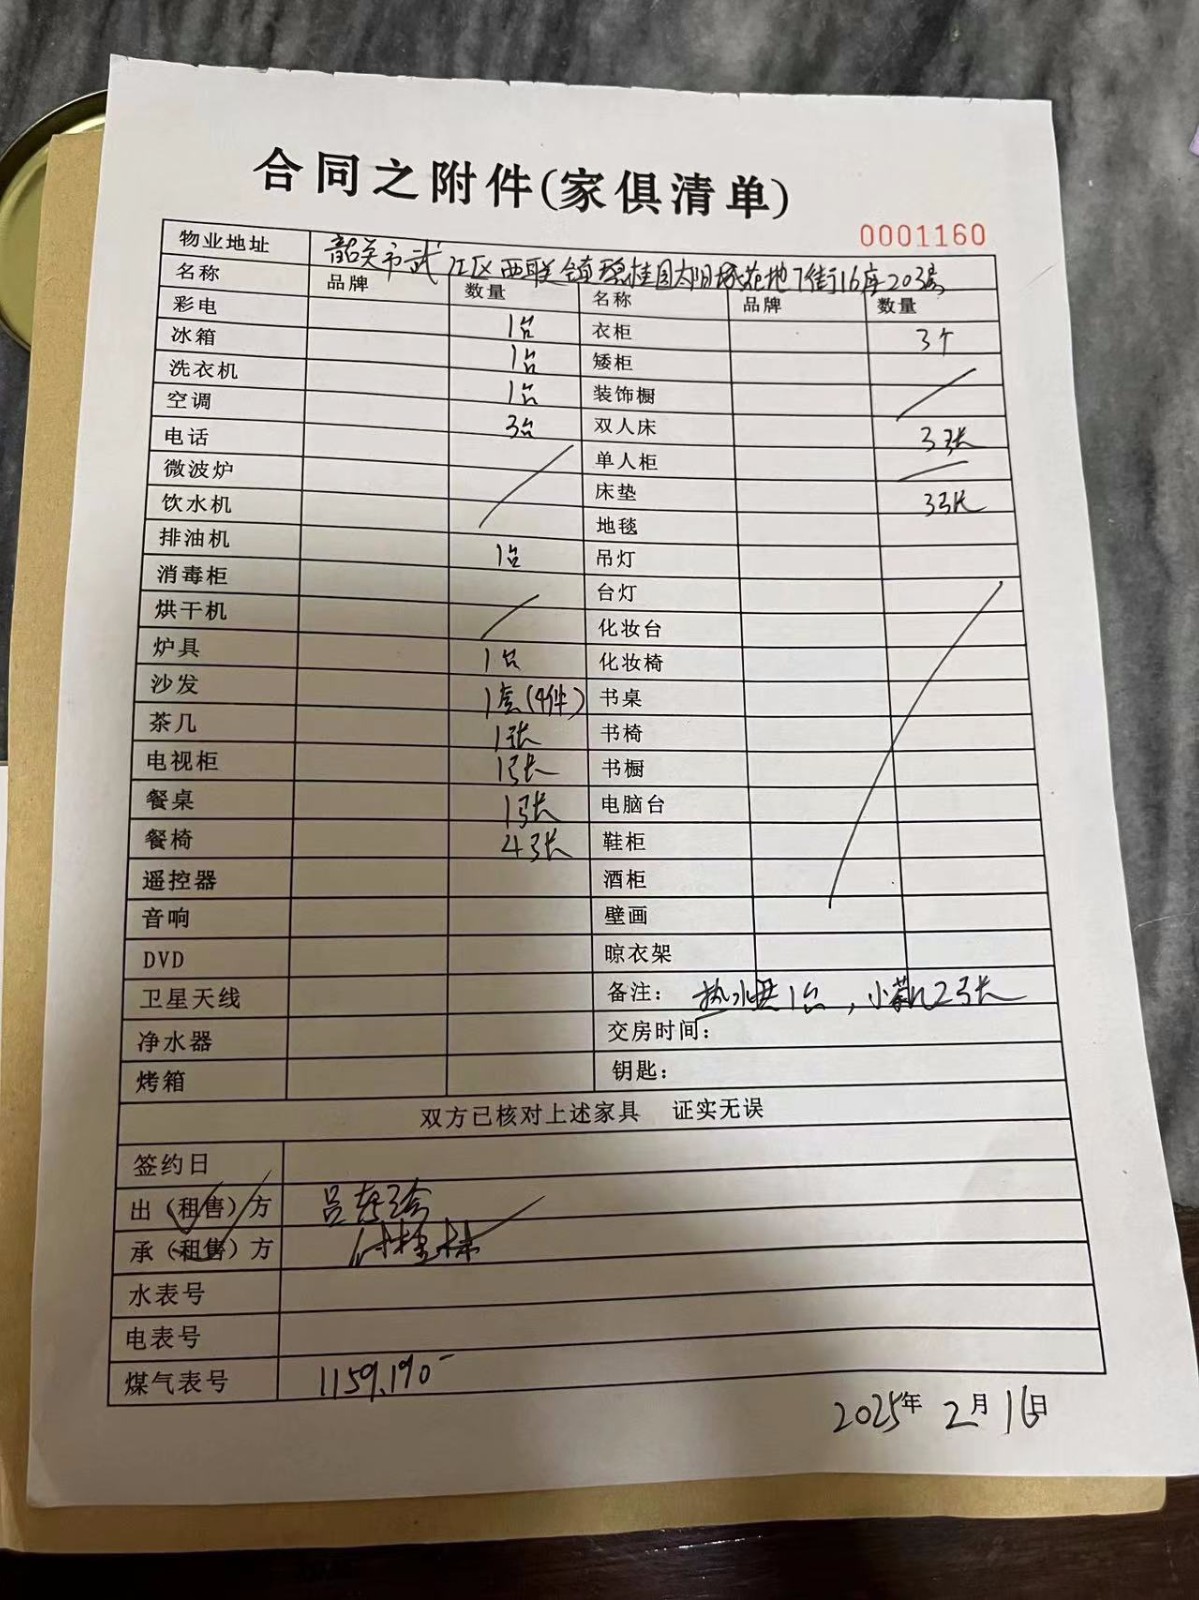 合同之附件(家俱清单)
0001160
物业地址 韶关市武江区西联镇碧桂园太阳城花地7街16座203房
名称 品牌 数量 名称 品牌 数量
彩电 1台 衣柜 3个
冰箱 1台 矮柜
洗衣机 1台 装饰橱
空调 3台 双人床 3张
电话 单人柜
微波炉 床垫 3张
饮水机 地毯
排油机 1台 吊灯
消毒柜 台灯
烘干机 化妆台
炉具 1台 化妆椅
沙发 1套(4件) 书桌
茶几 1张 书椅
电视柜 1张 书橱
餐桌 1张 电脑台
餐椅 4张 鞋柜
遥控器 酒柜
音响 壁画
DVD 晾衣架
卫星天线 备注: 热水器1台,小茶几2张
净水器 交房时间:
烤箱 钥匙:
双方已核对上述家具 证实无误
签约日
出(租售)方 吕
承(租售)方
水表号
电表号
煤气表号 1159.190
2025年2月16日